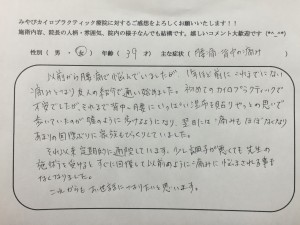 みやびカイロプラクティック療院に対するご感想をよろしくお願いいたします！！
施術内容、院長の人柄・雰囲気、院内の様子なんでも結構です。嬉しいコメント大歓迎です(*^_^*)
性別（ 男 ・ 女 ）年齢（ 39 才 ）主な症状（ 腰痛・背中の痛み ）
以前から腰痛で悩んでいましたが、1年ほど前にこれまでにない
痛みとなり友人の紹介で通い始めました。初めてのカイロプラクティックで
不安でしたが、それまで背中の
歩いていたのが嘘のように歩けるようになり、翌日には痛みもほぼなくなり
あまりの回復ぶりに家族もびっくりしていました。
それ以来定期的に通院しています。少し調子が悪くても先生の
施術を受けるとすぐに回復して以前のように痛みに悩まされる事も
なくなりました。
これからもお世話になりたいと思います。